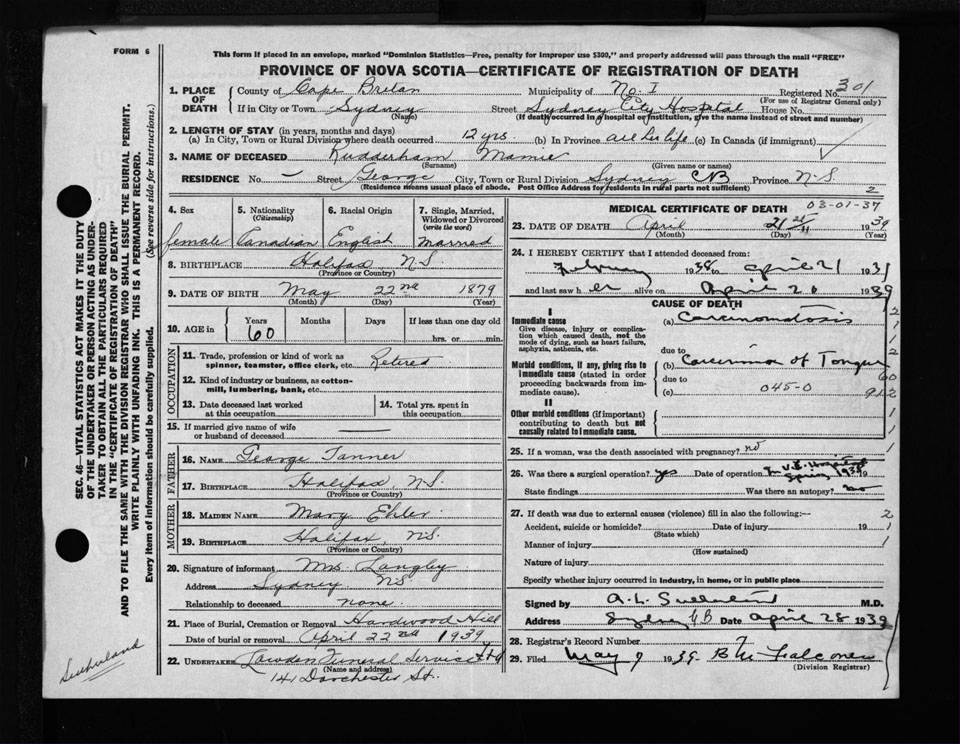 FORM 6
This form if placed in an envelope, marked "Dominion Statistics—Free, penalty for improper use $300," and properly addressed will pass through the mail "FREE"
PROVINCE OF NOVA SCOTIA—CERTIFICATE OF REGISTRATION OF DEATH
SEC. 46—VITAL STATISTICS ACT MAKES IT THE DUTY
OF THE UNDERTAKER OR PERSON ACTING AS UNDER-
TAKER TO OBTAIN ALL THE PARTICULARS REQUIRED
IN THE "CERTIFICATE OF REGISTRATION OF DEATH"
AND TO FILE THE SAME WITH THE DIVISION REGISTRAR WHO SHALL ISSUE THE BURIAL PERMIT.
WRITE PLAINLY WITH UNFADING INK. THIS IS A PERMANENT RECORD.
Every item of information should be carefully supplied. (See reverse side for instructions.)
Sutherland
1. PLACE OF DEATH County of Cape Breton Municipality of No. I Registered No. 301
(For use of Registrar General only)
If in City or Town Sydney Street Sydney City Hospital House No.
(Name) (If death occurred in a hospital or institution, give the name instead of street and number)
2. LENGTH OF STAY (in years, months and days)
(a) In City, Town or Rural Division where death occurred 12 yrs. (b) In Province all her life (c) In Canada (if immigrant)
3. NAME OF DECEASED Rudderham Mamie
(Surname) (Given name or names)
RESIDENCE No. — Street George City, Town or Rural Division Sydney CB Province N.S.
(Residence means usual place of abode. Post Office Address for residents in rural parts not sufficient) 2
4. Sex 5. Nationality (Citizenship) 6. Racial Origin 7. Single, Married, Widowed or Divorced (write the word)
female Canadian English married
8. BIRTHPLACE Halifax, N.S.
(Province or Country)
9. DATE OF BIRTH May 22nd 1879
(Month) (Day) (Year)
10. AGE in Years Months Days If less than one day old
60 hrs. or min.
OCCUPATION
11. Trade, profession or kind of work as spinner, teamster, office clerk, etc. Retired
12. Kind of industry or business, as cotton-mill, lumbering, bank, etc.
13. Date deceased last worked at this occupation 14. Total yrs. spent in this occupation
15. If married give name of wife or husband of deceased —
FATHER
16. NAME George Tanner
17. BIRTHPLACE Halifax, N.S.
(Province or Country)
MOTHER
18. MAIDEN NAME Mary Ehler
19. BIRTHPLACE Halifax, N.S.
(Province or Country)
20. Signature of informant Mrs. Langley
Address Sydney N.S.
Relationship to deceased none.
21. Place of Burial, Cremation or Removal Hardwood Hill
Date of burial or removal April 22nd 1939
22. UNDERTAKER Lowden Funeral Service Ltd
(Name and address)
141 Dorchester St.
MEDICAL CERTIFICATE OF DEATH 03-01-37
23. DATE OF DEATH April 21 1939
(Month) (Day) (Year)
24. I HEREBY CERTIFY that I attended deceased from:
February 1938 to April 21 1939
and last saw her alive on April 20 1939
CAUSE OF DEATH
I
Immediate cause (a) Carcinomatosis
Give disease, injury or complication which caused death, not the mode of dying, such as heart failure, asphyxia, asthenia, etc.
due to
Morbid conditions, if any, giving rise to immediate cause (stated in order proceeding backwards from immediate cause). (b) Carcinoma of Tongue
due to
(c) 045-0
II
Other morbid conditions (if important) contributing to death but not causally related to immediate cause.
25. If a woman, was the death associated with pregnancy? no
26. Was there a surgical operation? yes Date of operation Spring 1938 19
State findings Was there an autopsy? no
27. If death was due to external causes (violence) fill in also the following:—
Accident, suicide or homicide? Date of injury 19
(State which)
Manner of injury
(How sustained)
Nature of injury
Specify whether injury occurred in industry, in home, or in public place
Signed by A. L. Sutherland M.D.
Address Sydney C.B. Date April 28 1939
28. Registrar's Record Number 7
29. Filed May 9 1939 B. M. Falconer
(Division Registrar)